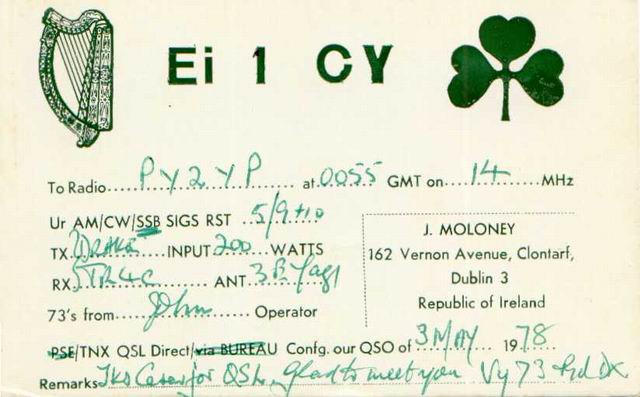 Ei 1 CY
To Radio PY2YP at 0055 GMT on 14 MHz
Ur AM/CW/SSB SIGS RST 5/9+10
TX DRAKE INPUT 200 WATTS
RX TR4C ANT 3 El Yagi
73's from John Operator
J. MOLONEY
162 Vernon Avenue, Clontarf,
Dublin 3
Republic of Ireland
PSE/TNX QSL Direct/via BUREAU Confg. our QSO of 3 MAY 1978
Remarks Tks for QSL, Glad to meet you Vy 73 DX